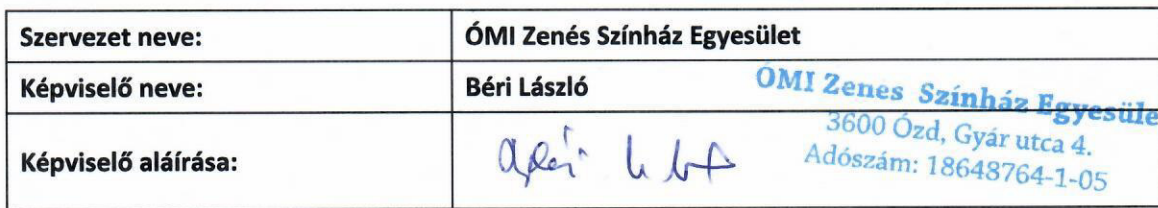 Szervezet neve: ÓMI Zenés Színház Egyesület
Képviselő neve: Béri László
Képviselő aláírása:
ÓMI Zenés Színház Egyesüle
3600 Ózd, Gyár utca 4.
Adószám: 18648764-1-05